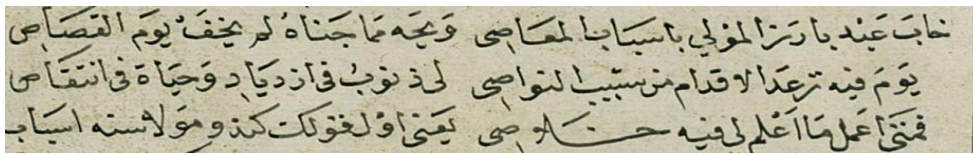 خاب عبد بارز المولي باسباب المعاصي ويحه مما جناه لم يخف يوم القصاص
يوم فيه ترعد الاقدام من شيب النواصي لي ذنوب في ازدياد وحياة في انتقاص
فمتي اعمل ما اعلم لي فيه خلاصي يعني اول قولك كند و مولاسنه اسباب